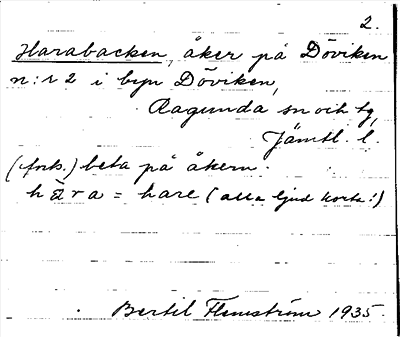 2.
Harabacken, åker på Döviken
n:r 2 i byn Döviken,
Ragunda sn och tg,
Jämtl. l.
(forts.) beta på åkern.
hàra = hare (alla ljud korta!)
Bertil Flemström 1935.